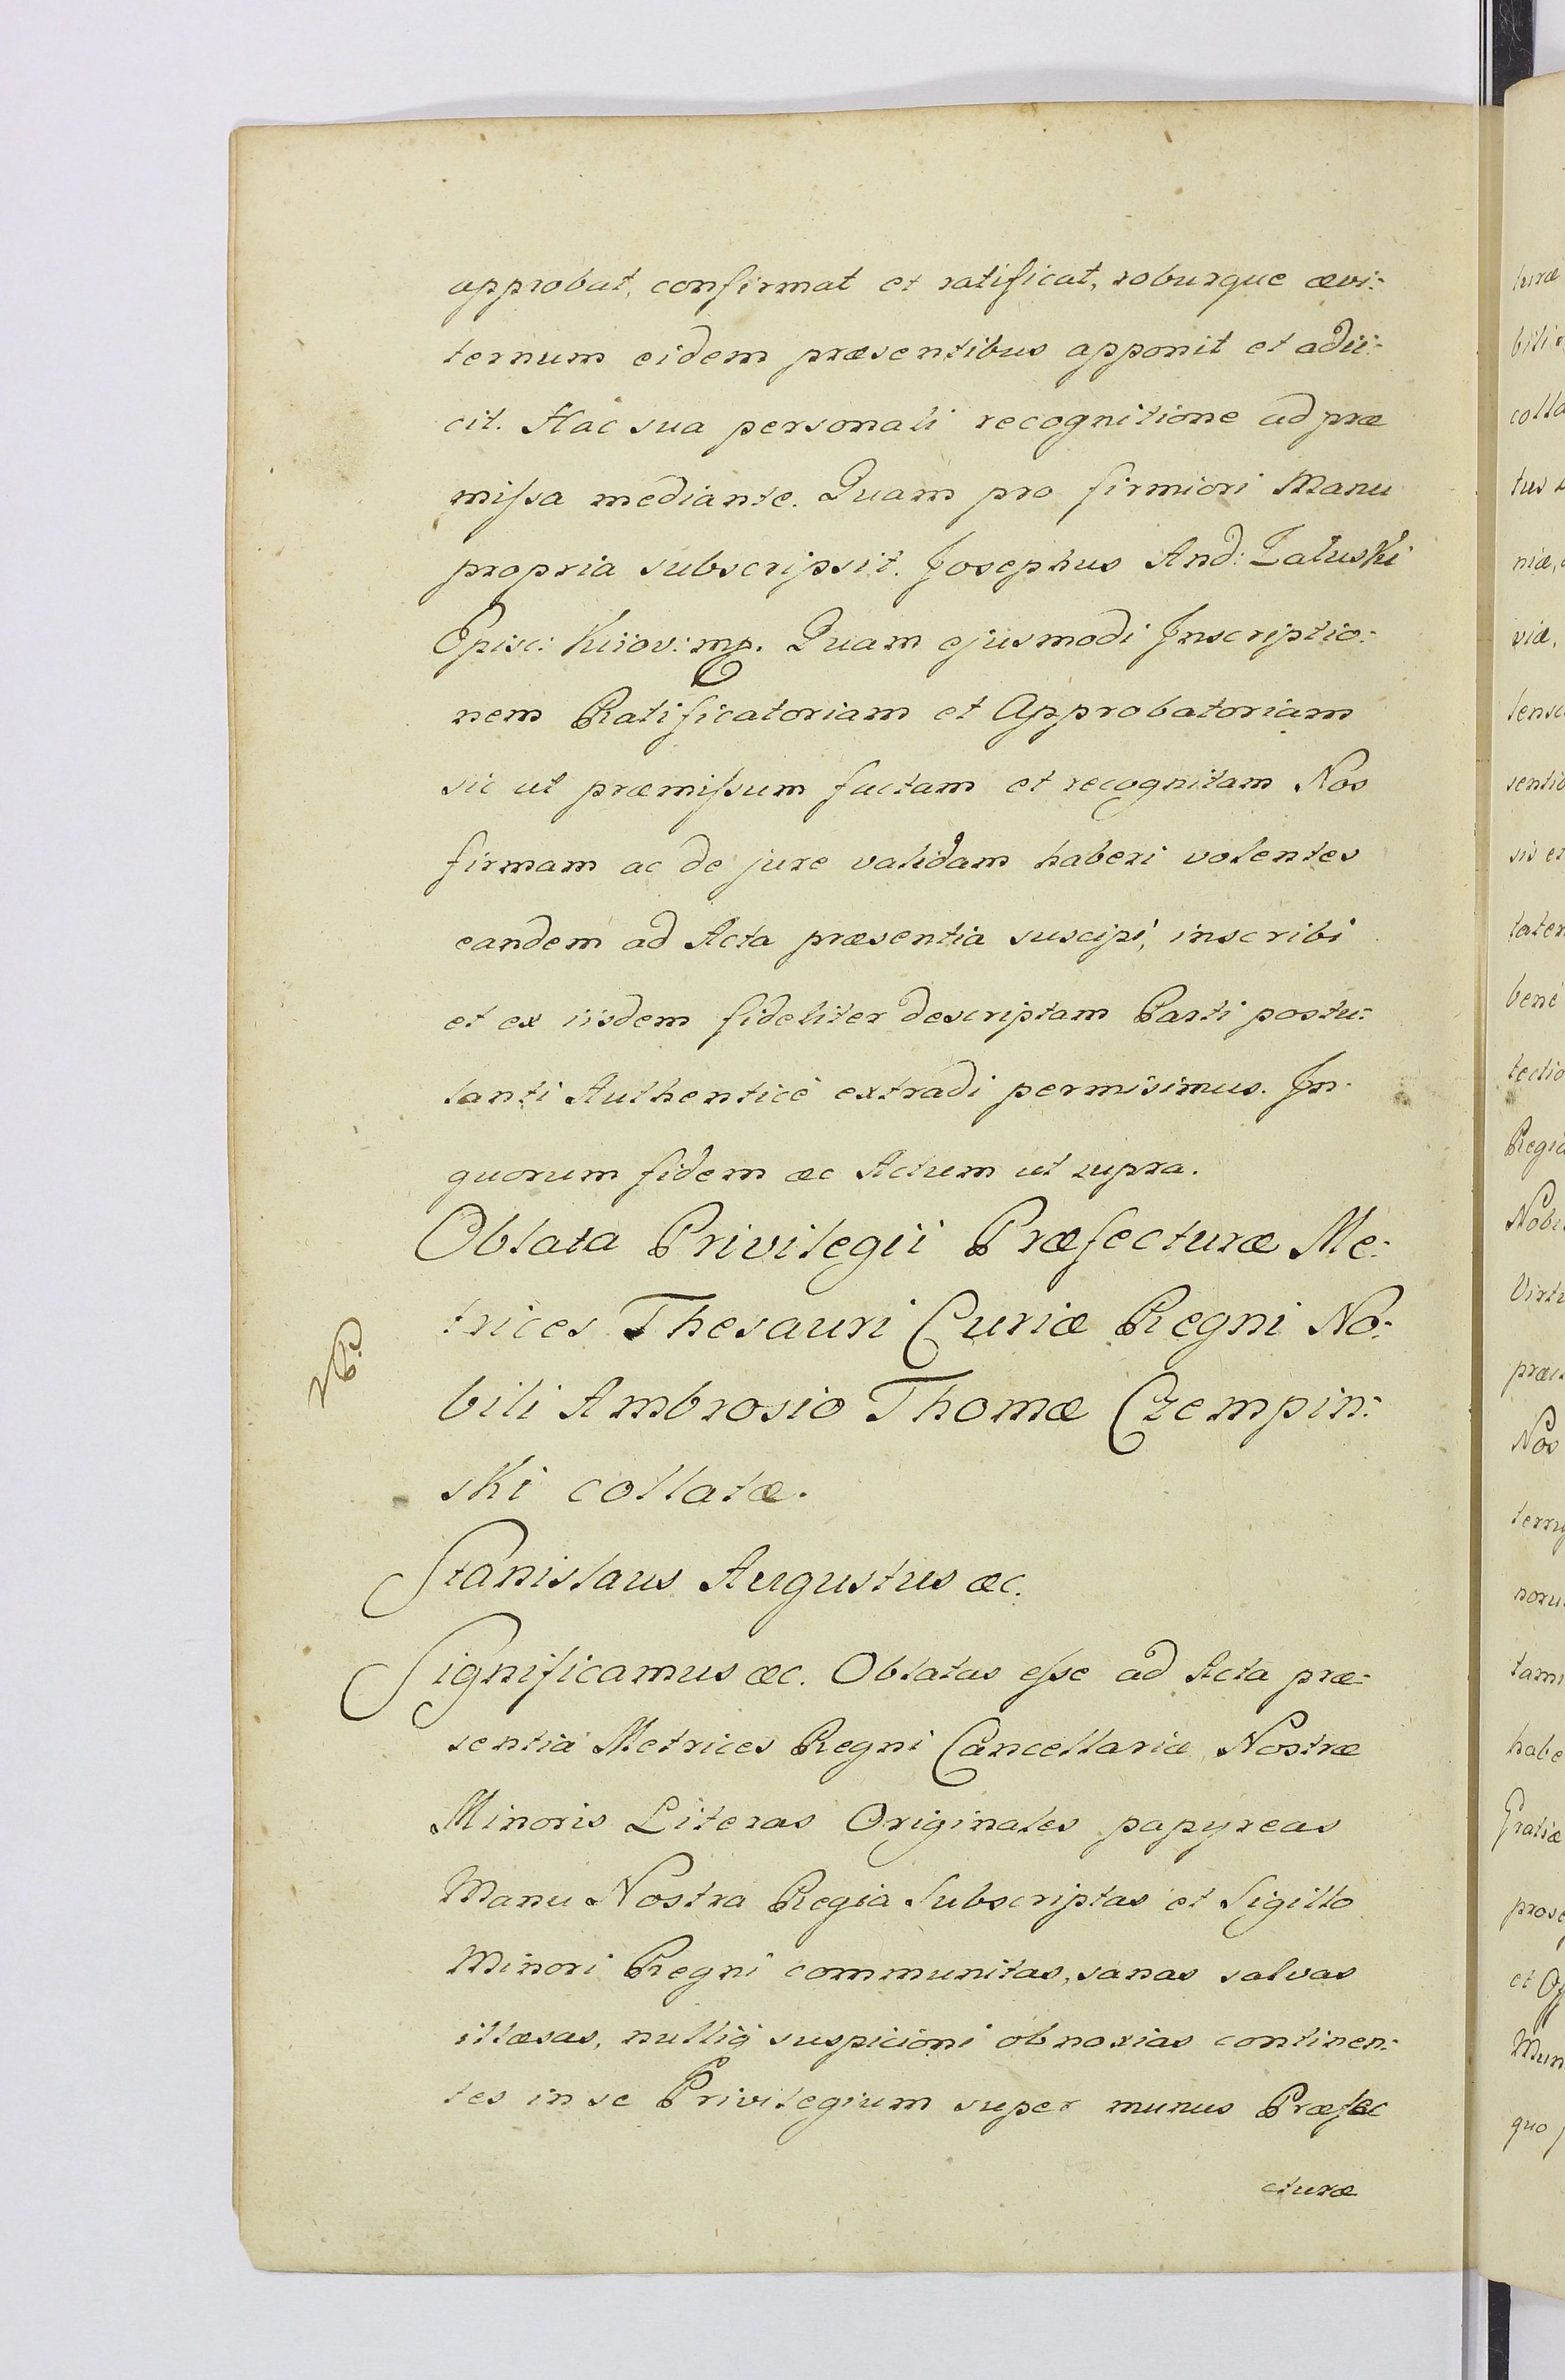 approbat, confirmat et ratificat, roburque ævi-
ternum eidem præsentibus apponit et adii-
cit. Hac sua personali recognitione ad præ
missa mediante. Quam pro firmiori Manu
propria subscripsit. Josephus And: Załuski
Episc: Kiiov: mp. Quam ejusmodi Inscriptio-
nem Ratificatoriam et Approbatoriam
sic ut præmissum factam et recognitam Nos
firmam ac de jure validam haberi volentes
eandem ad Acta præsentia suscipi, inscribi
et ex iisdem fideliter descriptam Parti postu-
lanti Authenticè extradi permisimus. In
quorum fidem æc Actum ut supra.
Oblata Privilegii Præfecturæ Me-
trices Thesauri Curiæ Regni No-
bili Ambrosio Thomæ Czempin-
ski collatæ.
Stanislaus Augustus æc.
Significamus æc. Oblatas esse ad Acta præ-
sentia Metrices Regni Cancellariæ Nostræ
Minoris Literas Originales papyreas
Manu Nostra Regia Subscriptas et Sigillo
Minori Regni communitas, sanas salvas
illæsas, nulliq suspicioni obnoxias continen-
tes in se Privilegium super munus Præfec
cturæ
turæ
bili
colla
tus
niæ,
viæ,
sentio
sis et
later
bene
lectio
Regia
Nobi
Virtu
præ
Nos
noru
tam
habe
Gratiæ
et
Mun
quo